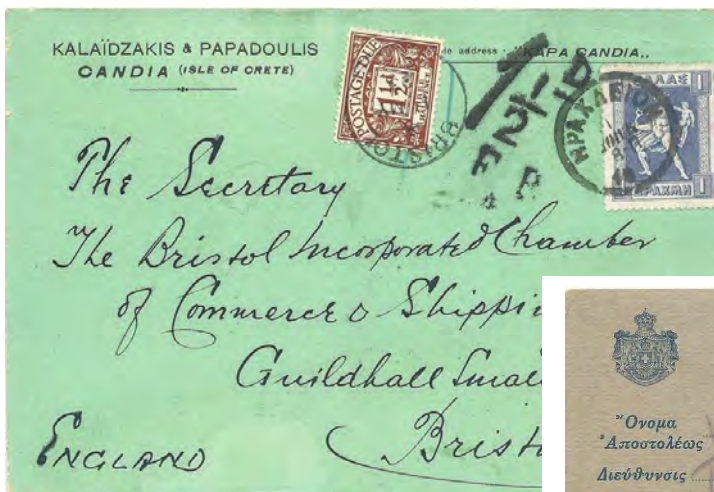 KALAÏDZAKIS & PAPADOULIS
CANDIA (ISLE OF CRETE)
address : "KAPA CANDIA„
POSTAGE DUE
1½D
BRISTOL
ΕΛΛΑΣ 1
ΗΡΑΚΛΕΙΟΝ
1 ΔΡΑΧΜΗ 1
The Secretary
The Bristol Incorporated Chamber
of Commerce & Shippin
Guildhall Small
Brist
ENGLAND
Ὄνομα
Ἀποστολέως
Διεύθυνσις